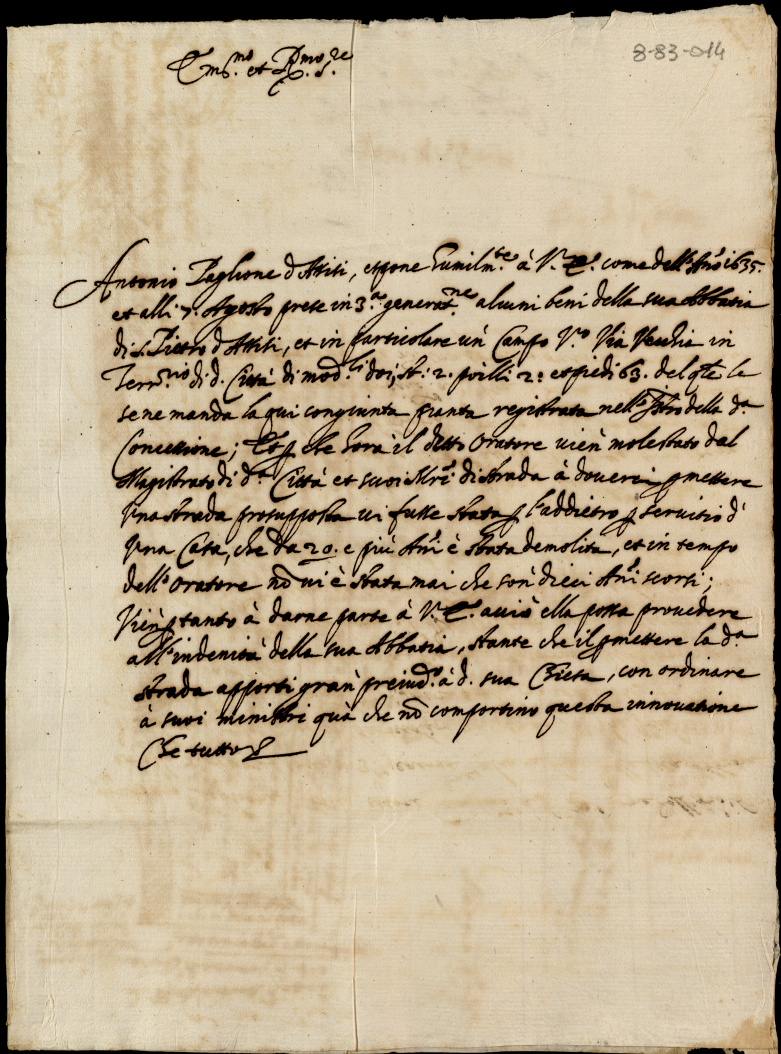 8-83-014
Em.mo et R.mo S.re
Antonio Paglione d'Assisi, espone humilm.te à V. E. come dell'Año 1635.
et alli 7. Agosto prese in 3.a generat.ne alcuni beni della sua Abbatia
di S. Pietro d'Assisi, et in particolare un' Campo V.o Via Vecchia in
Terr.rio di d. Città di mod.li doi, st: 2. poilli 2: et piedi 63. del q̃le le
se ne manda la qui congiunta pianta registrata nell' della d.a
Concessione; Et ꝑ che hora il detto Oratore vien' molestato dal
Magistrato di d.a Città et suoi Mri di strada à dover ꝑmettere
Una strada prosupposta vi fusse stata ꝑ l'addietro ꝑ servitio d'
Una Casa, che da 20. e più Añi è stata demolita, et in tempo
dell'Oratore nõ vi è stata mai che son' dieci Añi scorsi;
Vien' ꝑtanto à darne parte à V. E. acciò ella possa provedere
all'indenità della sua Abbatia, stante che il ꝑmettere la d.a
strada apporti gran' preiud.o à d. sua Chiesa, con ordinare
à suoi ministri quà che nõ comportino questa innovatione
Che tutto